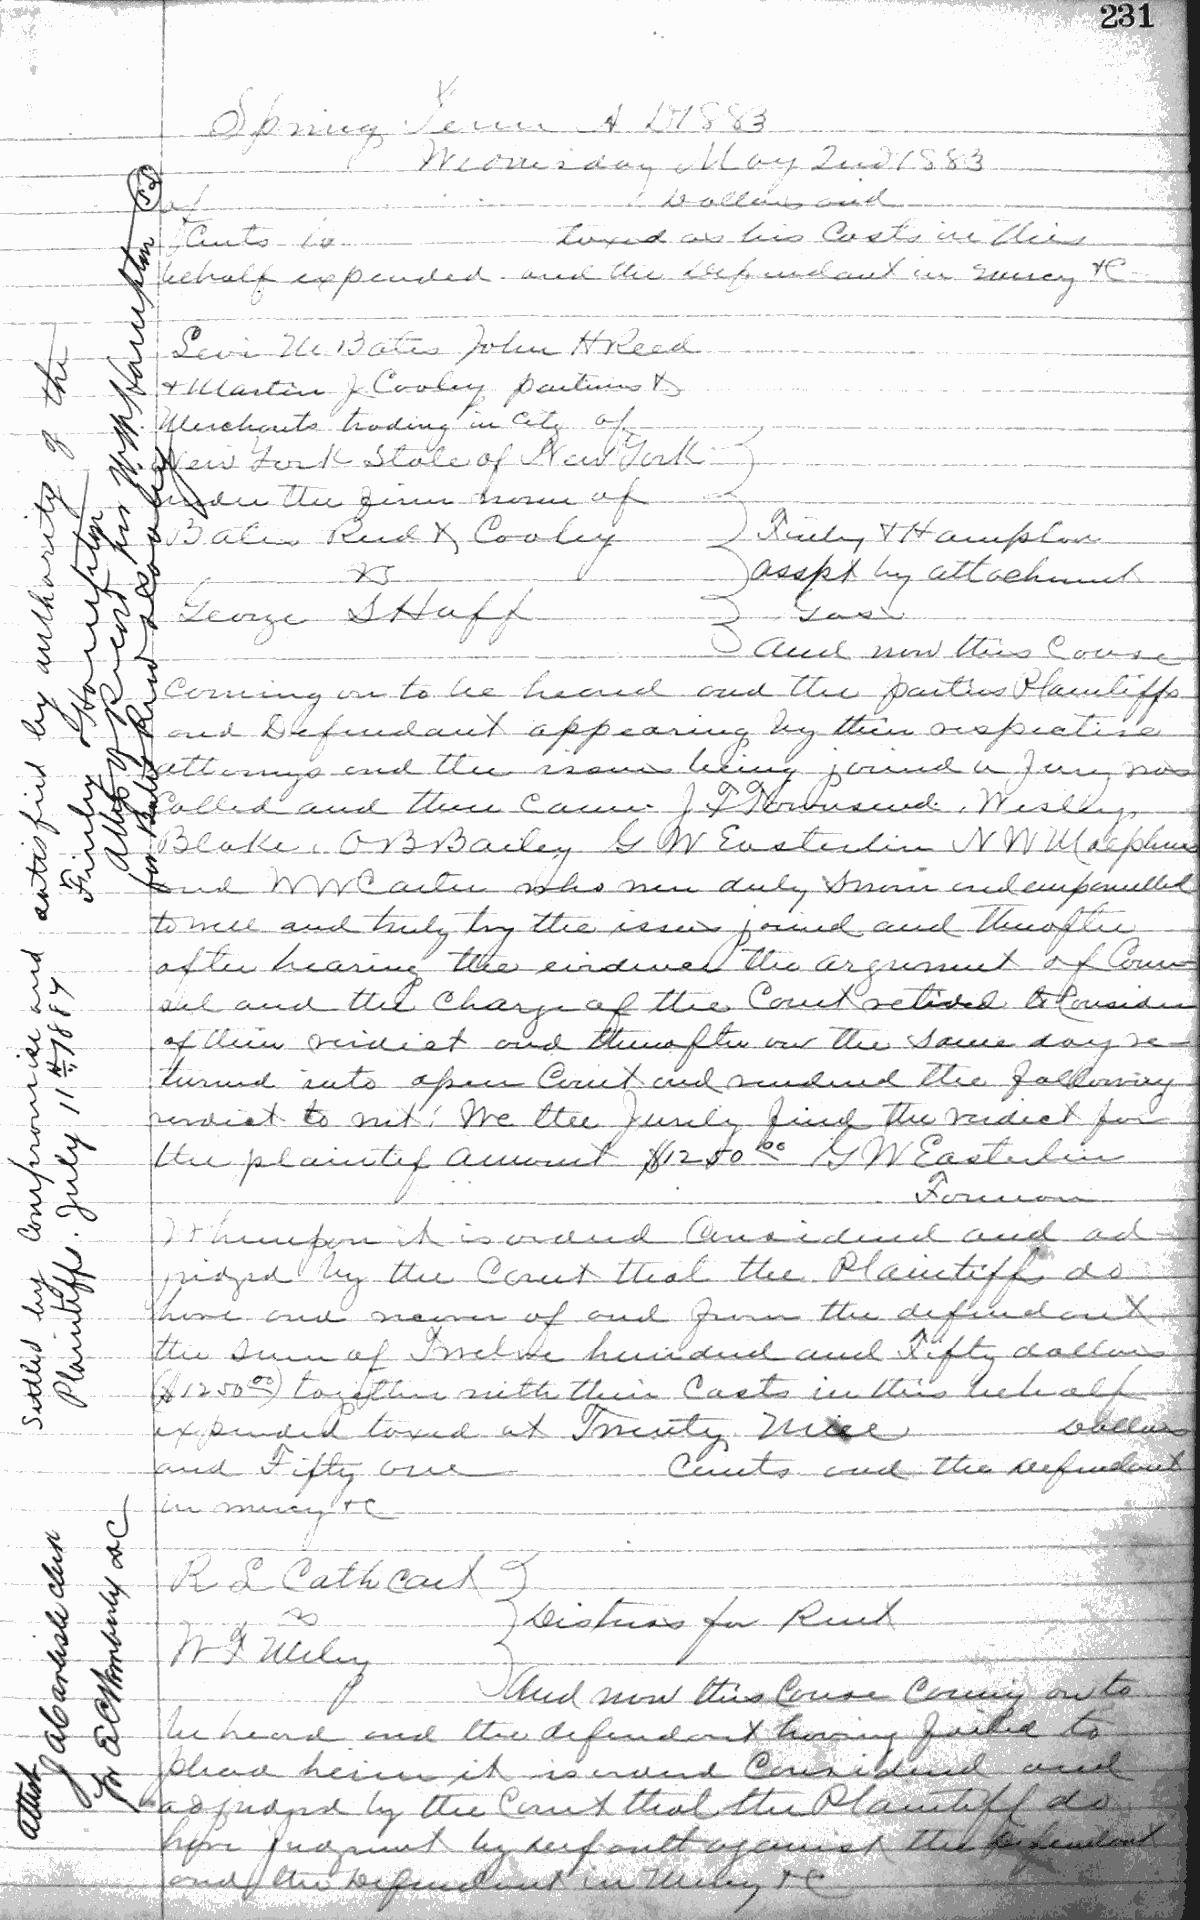 231
Spring Term A D 1883
Wednesday May 2nd 1883
of Dollars and
Cents is taxed as his Costs in this
behalf expended and the Defendant in mercy &C
Levi M Bates John H Reed
& Martin J Cooley partners &
Merchants trading in City of
New York State of New York
under the firm name of
Bates Reed & Cooley
vs
George S Huff
Finley & Hampton
asspt by attachment
And now this Cause
Coming on to be heard and the parties Plaintiffs
and Defendant appearing by their respective
attorneys and the issues being joined a Jury was
Called and then came J F Townsend, Wesley
Blake, O B Bailey G W Easterlin N W
and W W Carter who were duly sworn and empanelled
to well and truly try the issues joined and thereafter
after hearing the evidence the argument of Coun-
sel and the Charge of the Court retired to Consider
of their verdict and thereafter on the same day re-
turned into open Court and rendered the following
verdict to wit: We the Jurily find the verdict for
the plaintif amount $1250.00 G W Easterlin
Forman
Whereupon it is ordered Considered and ad
judged by the Court that the Plaintiffs do
have and recover of and from the defendant
the sum of Twelve hundred and Fifty dollars
($1250.00) together with their Costs in this behalf
expended taxed at Twenty Dollars
and Fifty one Cents and the Defendant
in mercy &C
R L Cathcart
vs
W F Wiley
Distress for Rent
And now this Cause Coming on to
be heard and the defendant having failed to
plead herein it is ordered Considered and
adjudged by the Court that the Plaintiff do
have judgment by default against the Defendant
and the Defendant in Mercy &C
Settled by Compromise and satisfied by authority of the
Plaintiffs. July 11th 1884
Finley & Hampton
Attys of Record per W. W. Hampton
for Bates Reed & Cooley
Attest